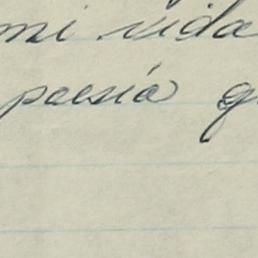 mi vida
poesía